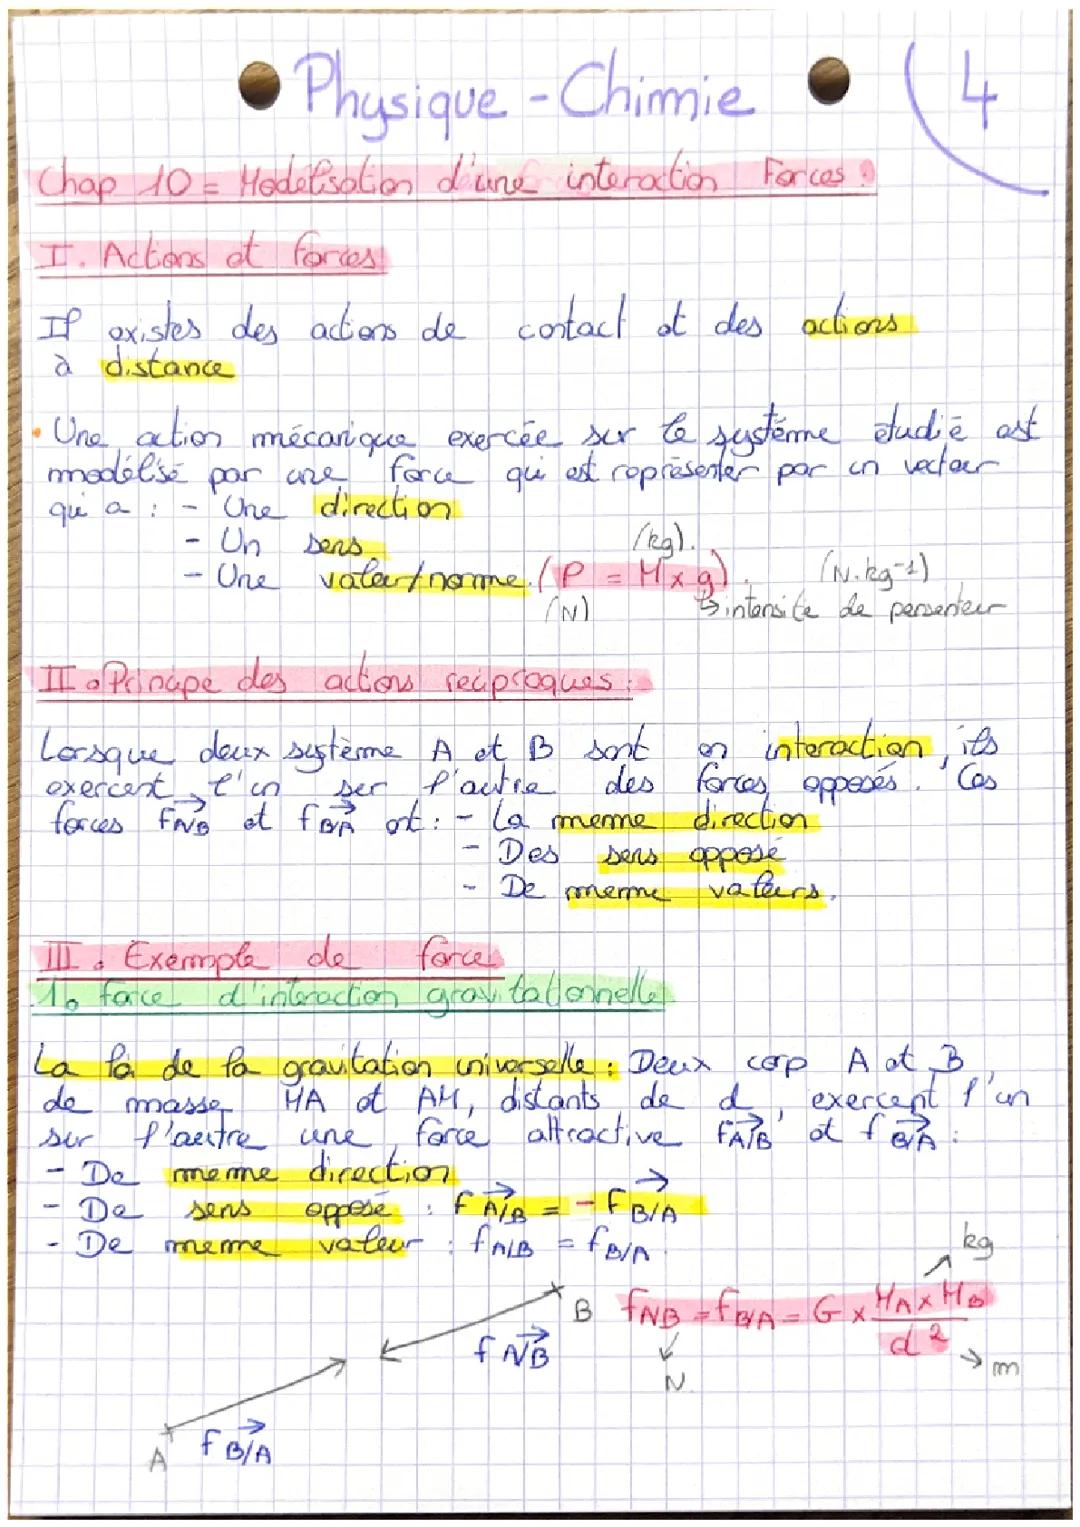 Physique - Chimie
4
Chap 10 = Modélisation d'une interaction Forces :
I. Actions et forces
Il existes des actions de contact et des actions
à distance
• Une action mécanique exercée sur le système étudié est
modélisé par une force qui est représenter par un vecteur
qui a : - Une direction
- Un sens
(kg).
- Une valeur/norme. (P = M x g). (N.kg-1)
(N) ↳ intensite de pesenteur
II. Principe des actions reciproques :
Lorsque deux système A et B sont en interaction, ils
exercent l'un sur l'autre des forces opposés. Ces
forces fA/B et fB/A ont : - La meme direction
- Des sens opposé
- De meme valeurs.
III. Exemple de forces
1. force d'interaction gravitationnelle
La loi de la gravitation universelle : Deux corp A et B,
de masse MA et AM, distants de d, exercent l'un
sur l'autre une force attractive fA/B et fB/A :
- De meme direction
- De sens opposé : fA/B = - fB/A
- De meme valeur : fA/B = fB/A
kg
B fA/B = fB/A = G x MA x MB / d²
fA/B
N
m
A fB/A